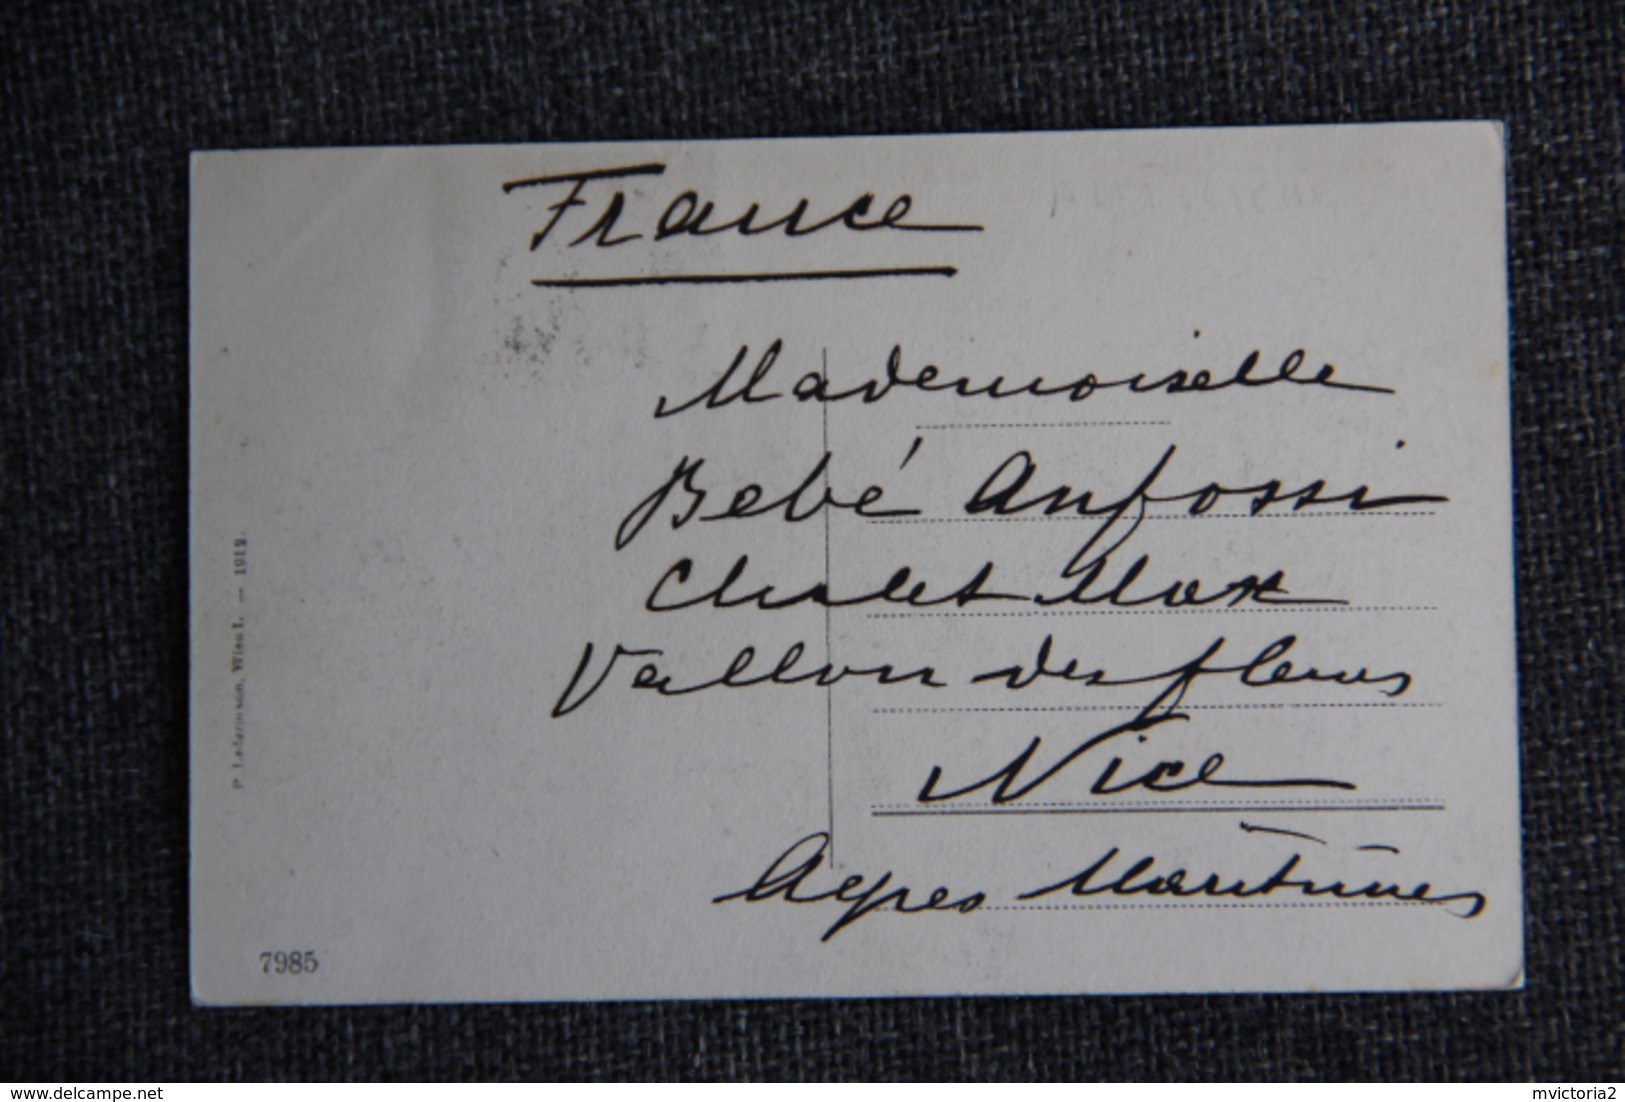 France
Mademoiselle
Bebé Anfossi
Chalet Max
Vallon des fleurs
Nice
Alpes Maritimes
P. Ledermann, Wien I. — 1912.
7985
www.delcampe.net
mvictoria2